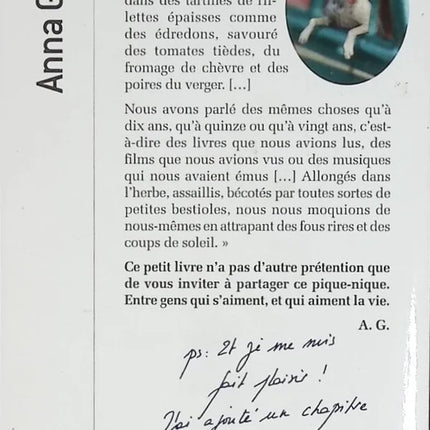 Anna G
dans des tartines de ril-
lettes épaisses comme
des édredons, savouré
des tomates tièdes, du
fromage de chèvre et des
poires du verger. [...]
Nous avons parlé des mêmes choses qu'à
dix ans, qu'à quinze ou qu'à vingt ans, c'est-
à-dire des livres que nous avions lus, des
films que nous avions vus ou des musiques
qui nous avaient émus [...] Allongés dans
l'herbe, assaillis, bécotés par toutes sortes de
petites bestioles, nous nous moquions de
nous-mêmes en attrapant des fous rires et des
coups de soleil. »
Ce petit livre n'a pas d'autre prétention que
de vous inviter à partager ce pique-nique.
Entre gens qui s'aiment, et qui aiment la vie.
A. G.
ps: Et je me suis
fait plaisir !
J'ai ajouté un chapitre